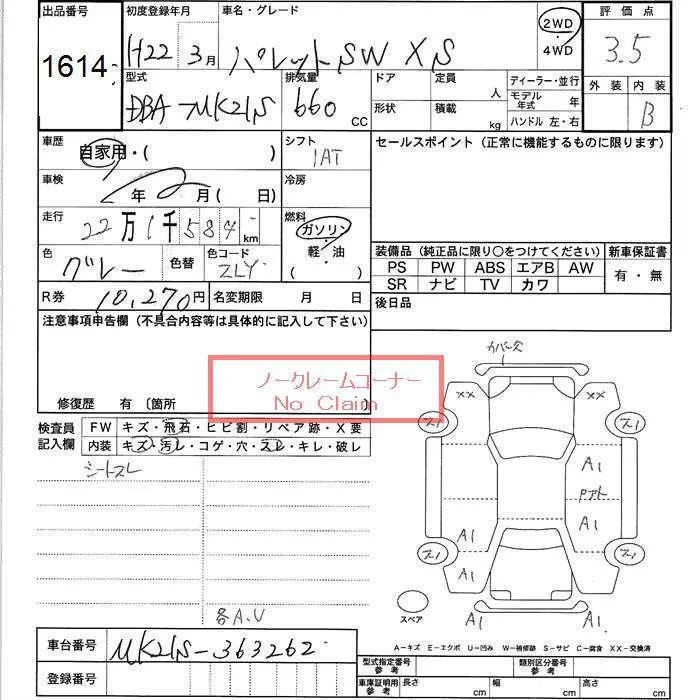 出品番号 初度登録年月 車名・グレード 2WD 評価点
1614 H22 3月 パレットSW XS 4WD 3.5
型式 排気量 ドア 定員 人 ディーラー・並行 外装 内装
DBA-MK21S 660 CC 形状 積載 kg モデル年式 年 B
ハンドル 左・右
車歴 自家用・( ) シフト セールスポイント (正常に機能するものに限ります)
IAT
車検 年 月 ( 日) 冷房
走行 22万1千584km 燃料
ガソリン
軽・油
( )
色 グレー 色替 色コード ZLY
装備品 (純正品に限り○をつけてください) 新車保証書
PS PW ABS エアB AW 有・無
SR ナビ TV カワ
R券 10,270円 名変期限 月 日 後日品
注意事項申告欄 (不具合内容等は具体的に記入して下さい)
カバー欠
ノークレームコーナー
No Claim
修復歴 有 〔箇所 〕
検査員記入欄 FW キズ・飛石・ヒビ割・リペア跡・X要
内装 キズ・汚レ・コゲ・穴・スレ・キレ・破レ
シートスレ
XX XX
A1
Pアト
A1 A1
A1
スペア A1 A1
各A.U
A-キズ E-エクボ U-凹み W-補修跡 S-サビ C-腐食 XX-交換済
車台番号 MK21S-363262
登録番号
型式指定番号 参考 類別区分番号 参考
車庫証明用 参考 長さ cm 幅 cm 高さ cm